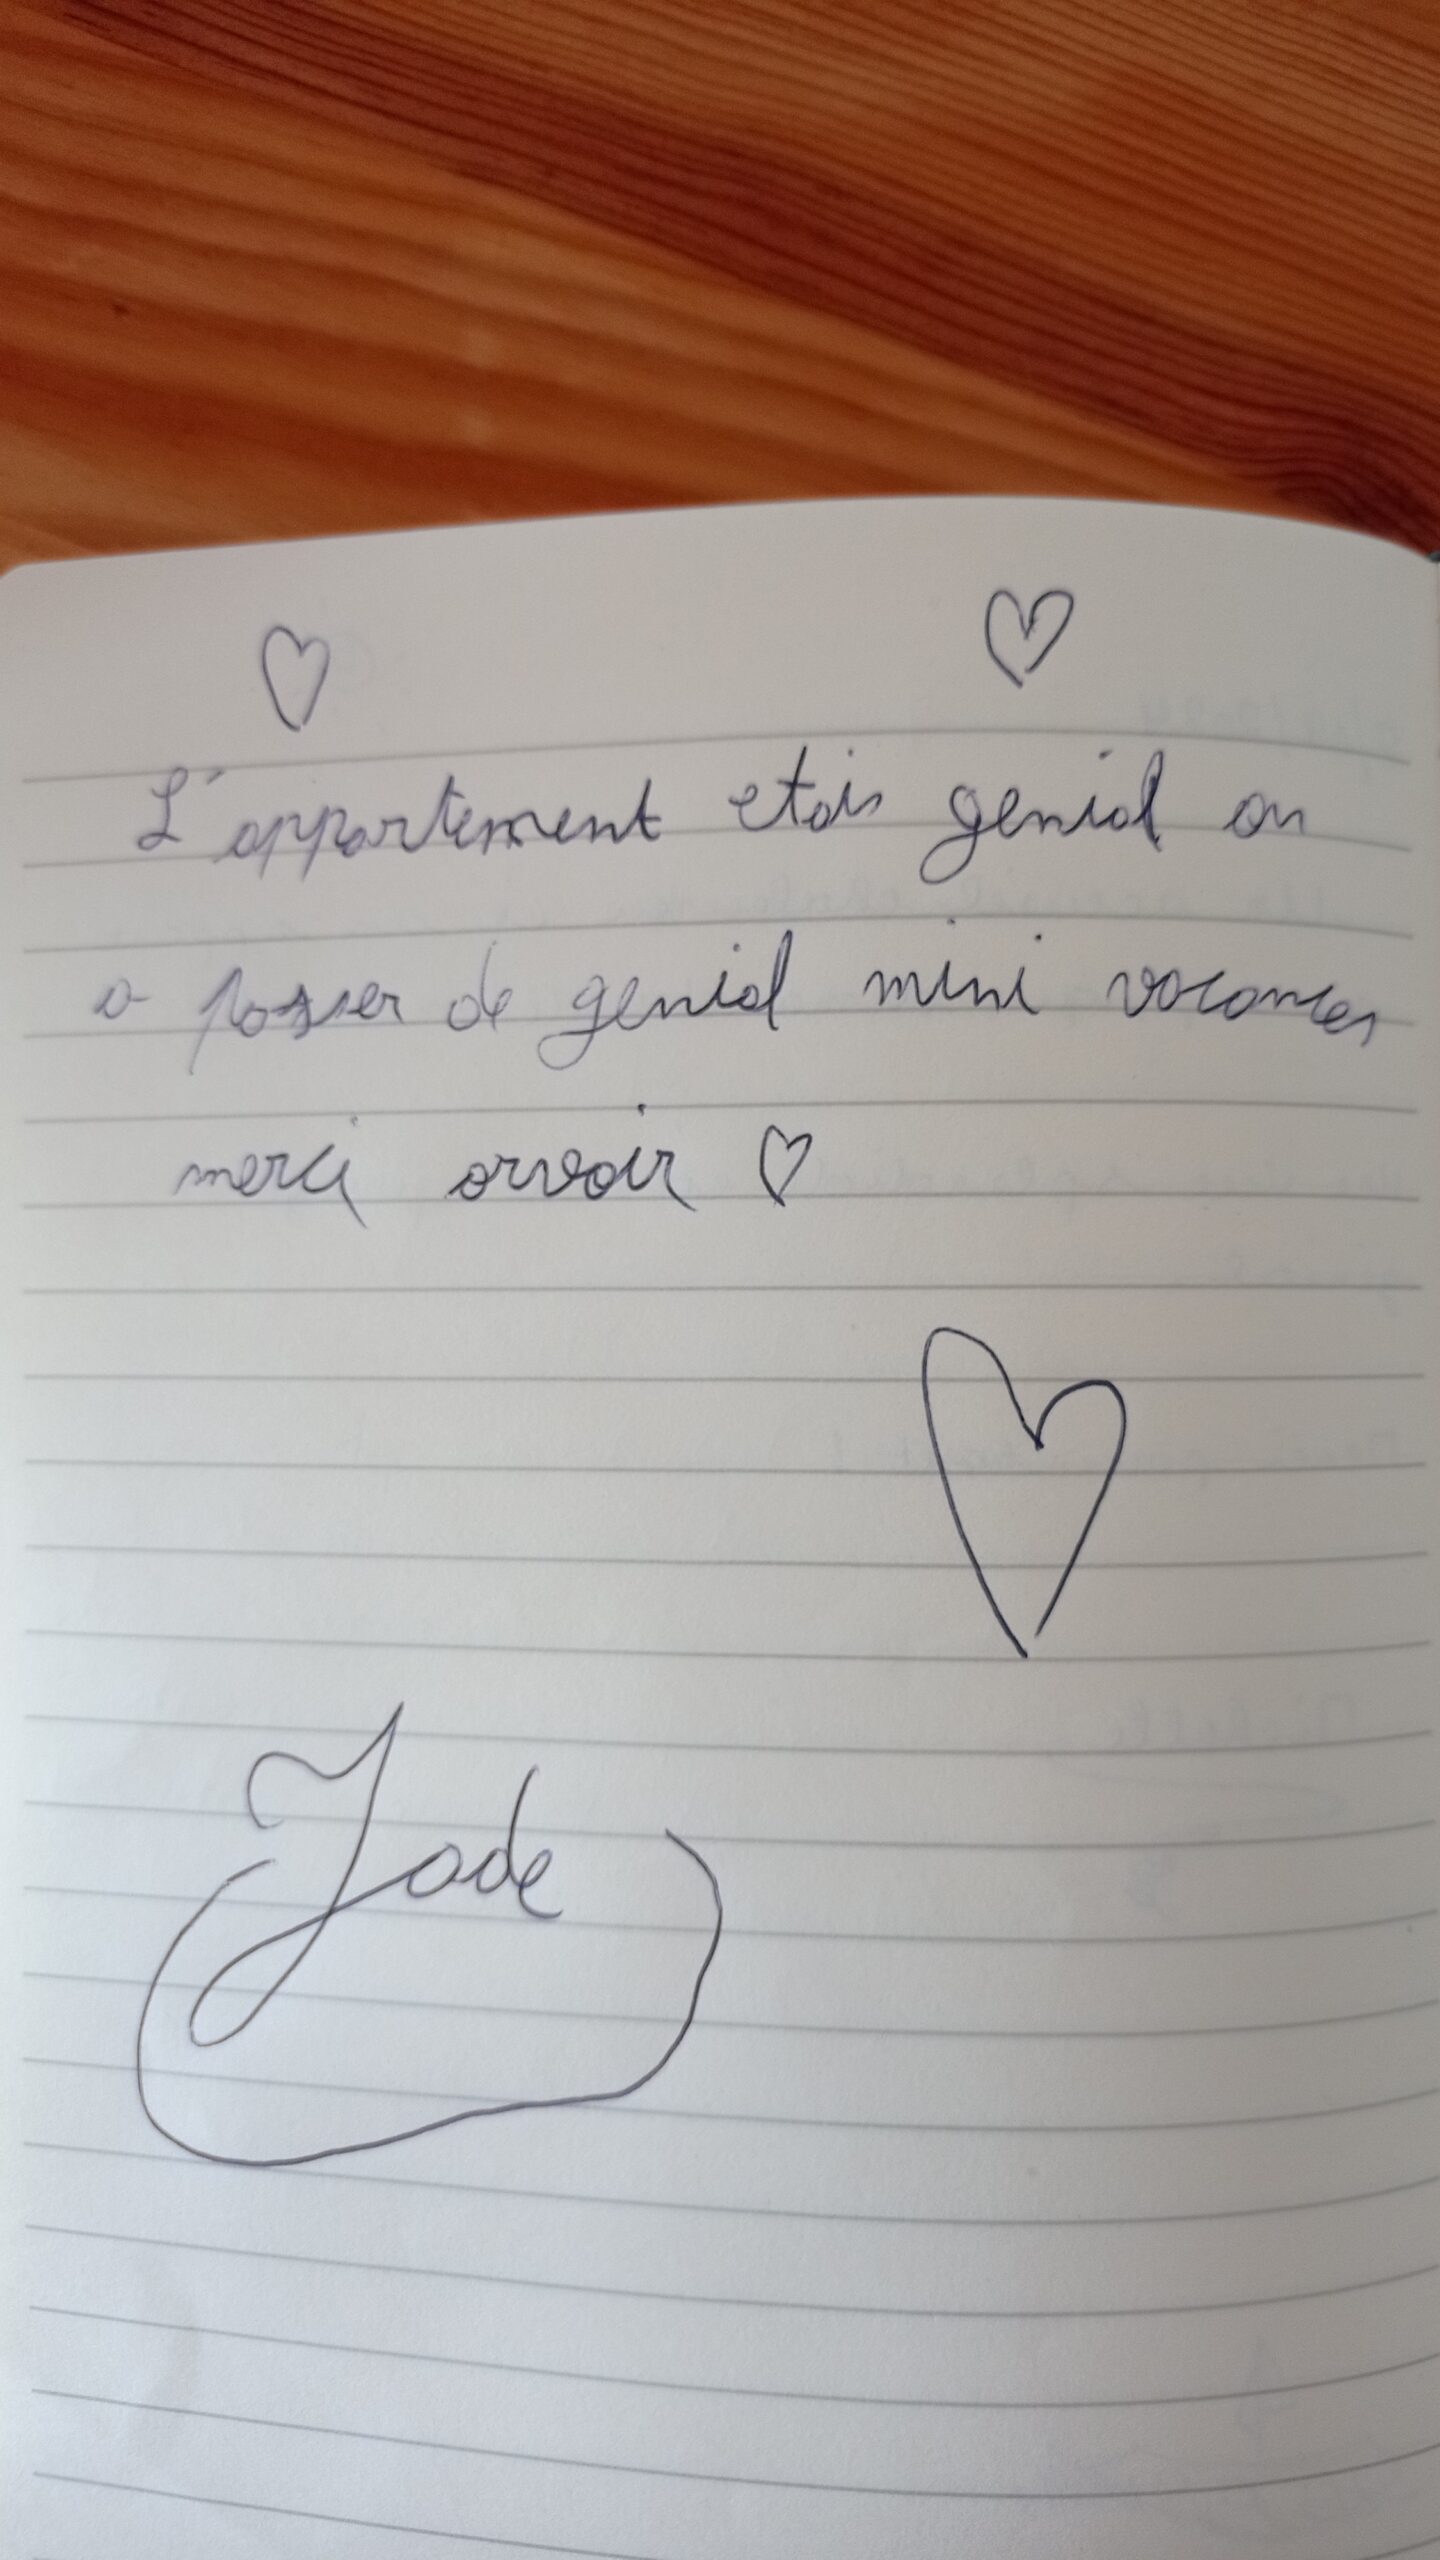 L'appartement etais genial on
a passer de genial mini vacances
merci orvoir ♡
Jade